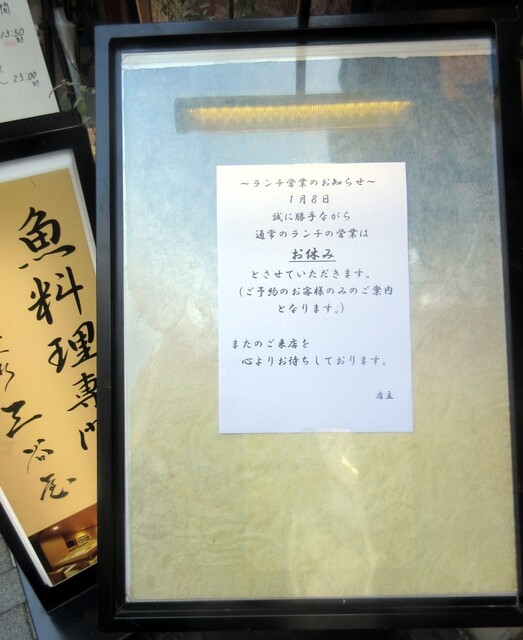 間
13:50
23:00
魚料理専門
三谷屋
～ランチ営業のお知らせ～
1月8日
誠に勝手ながら
通常のランチの営業は
お休み
とさせていただきます。
(ご予約のお客様のみのご案内
となります。)
またのご来店を
心よりお待ちしております。
店主